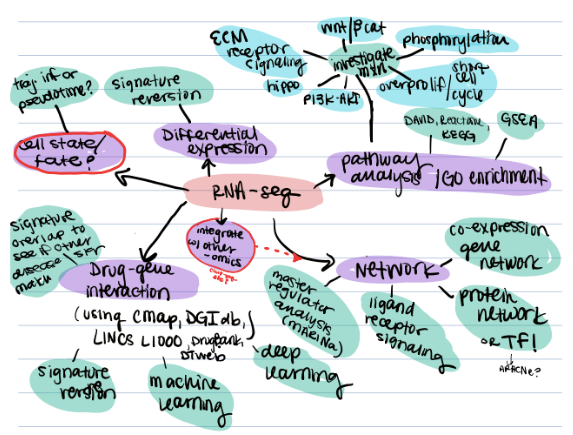 ECM
receptor
signaling
wnt/βcat
phosphorylation
investigate
hippo
PI3K-AKT
overprolif/
short
cell
cycle
traj inf or
pseudotime?
signature
reversion
cell state/
fate?
Differential
expression
DAVID, Reactome,
KEGG
GSEA
pathway
analysis /GO enrichment
RNA-seq
integrate
w/ other
-omics
signature
overlap to
see if other
disease/
match
Drug-gene
interaction
(using CMap, DGIdb,
LINCS L1000, Drugbank,
DTweb
signature
reversion
machine
learning
deep
learning
Network
master
regulator
analysis
(MARINa)
ligand
receptor
signaling
co-expression
gene
network
protein
network
OR TF!
ARACNe?